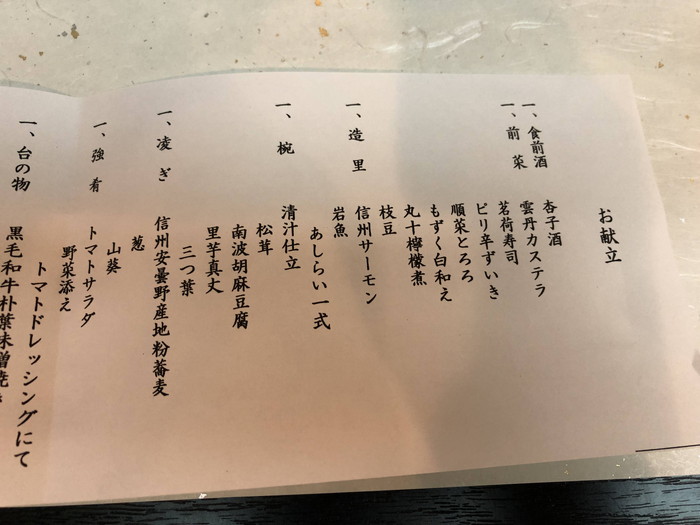 お献立
一、食前酒
杏子酒
一、前菜
雲丹カステラ
茗荷寿司
ピリ辛ずいき
順菜とろろ
もずく白和え
丸十檸檬煮
枝豆
一、造里
信州サーモン
岩魚
あしらい一式
一、椀
清汁仕立
松茸
南波胡麻豆腐
里芋真丈
三つ葉
一、凌ぎ
信州安曇野産地粉蕎麦
葱
山葵
一、強肴
トマトサラダ
野菜添え
トマトドレッシングにて
一、台の物
黒毛和牛朴葉味噌焼き